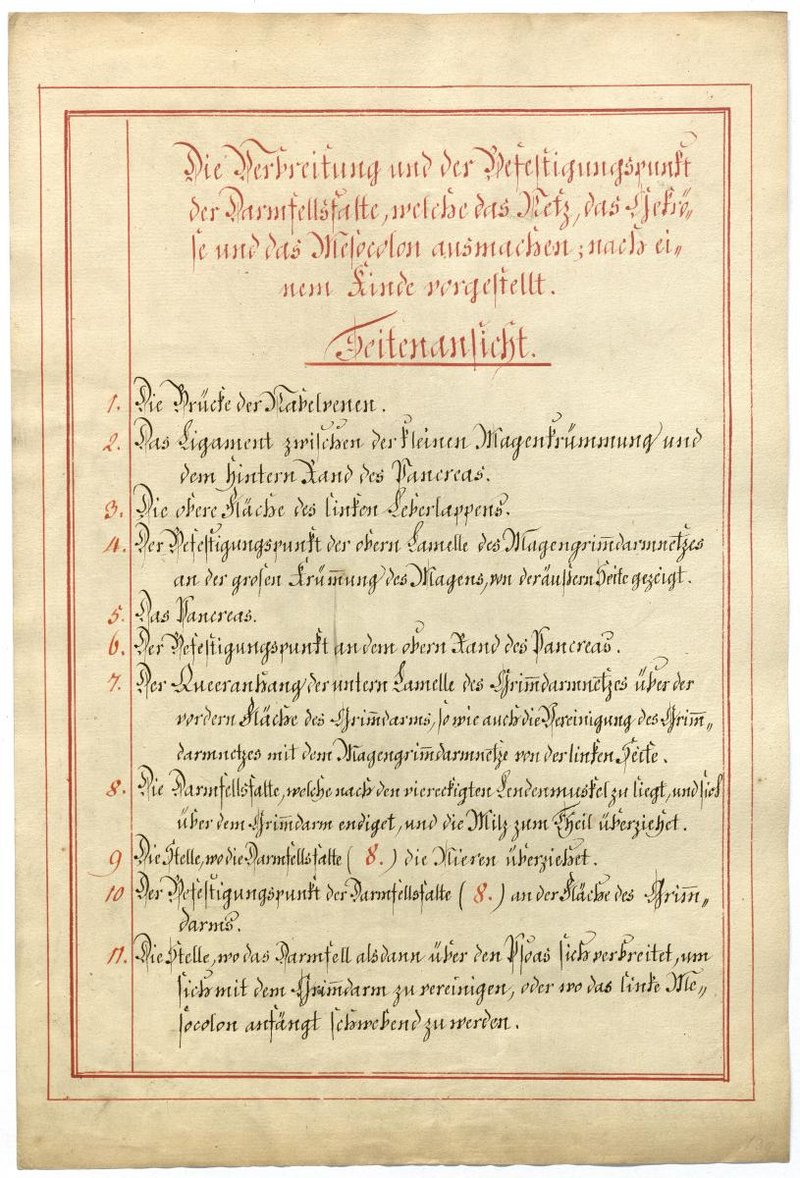 Die Verbreitung und der Befestigungspunkt
der Darmfellsfalte, welche das Netz, das Gekrö„
se und das Mesocolon ausmachen; nach ei„
nem Kinde vorgestellt.
Seitenansicht.
1. Die Brücke der Nabelvenen.
2. Das Ligament zwischen der kleinen Magenkrümmung und
dem hintern Rand des Pancreas.
3. Die obere Fläche des linken Leberlappens.
4. Der Befestigungspunkt der obern Lamelle des Magengrim̄darmnetzes
an der grosen Krüm̄ung des Magens, von der äußern Seite gezeigt.
5. Das Pancreas.
6. Der Befestigungspunkt an dem obern Rand des Pancreas.
7. Der Queeranhang der untern Lamelle des Grim̄darmnetzes über der
vordern Fläche des Grim̄darms, so wie auch die Vereinigung des Grim̄„
darmnetzes mit dem Magengrim̄darmnetze von der linken Seite.
8. Die Darmfellsfalte, welche nach den viereckigten Lendenmuskel zu liegt, und sich
über dem Grim̄darm endiget, und die Milz zum Theil überziehet.
9 Die Stelle, wo die Darmfellsfalte ( 8. ) die Nieren überziehet.
10 Der Befestigungspunkt der Darmfellsfalte ( 8. ) an der Fläche des Grim̄„
darms.
11. Die Stelle, wo das Darmfell alsdann über den Psoas sich verbreitet, um
sich mit dem Grim̄darm zu vereinigen, oder wo das linke Me„
socolon anfängt schwebend zu werden.